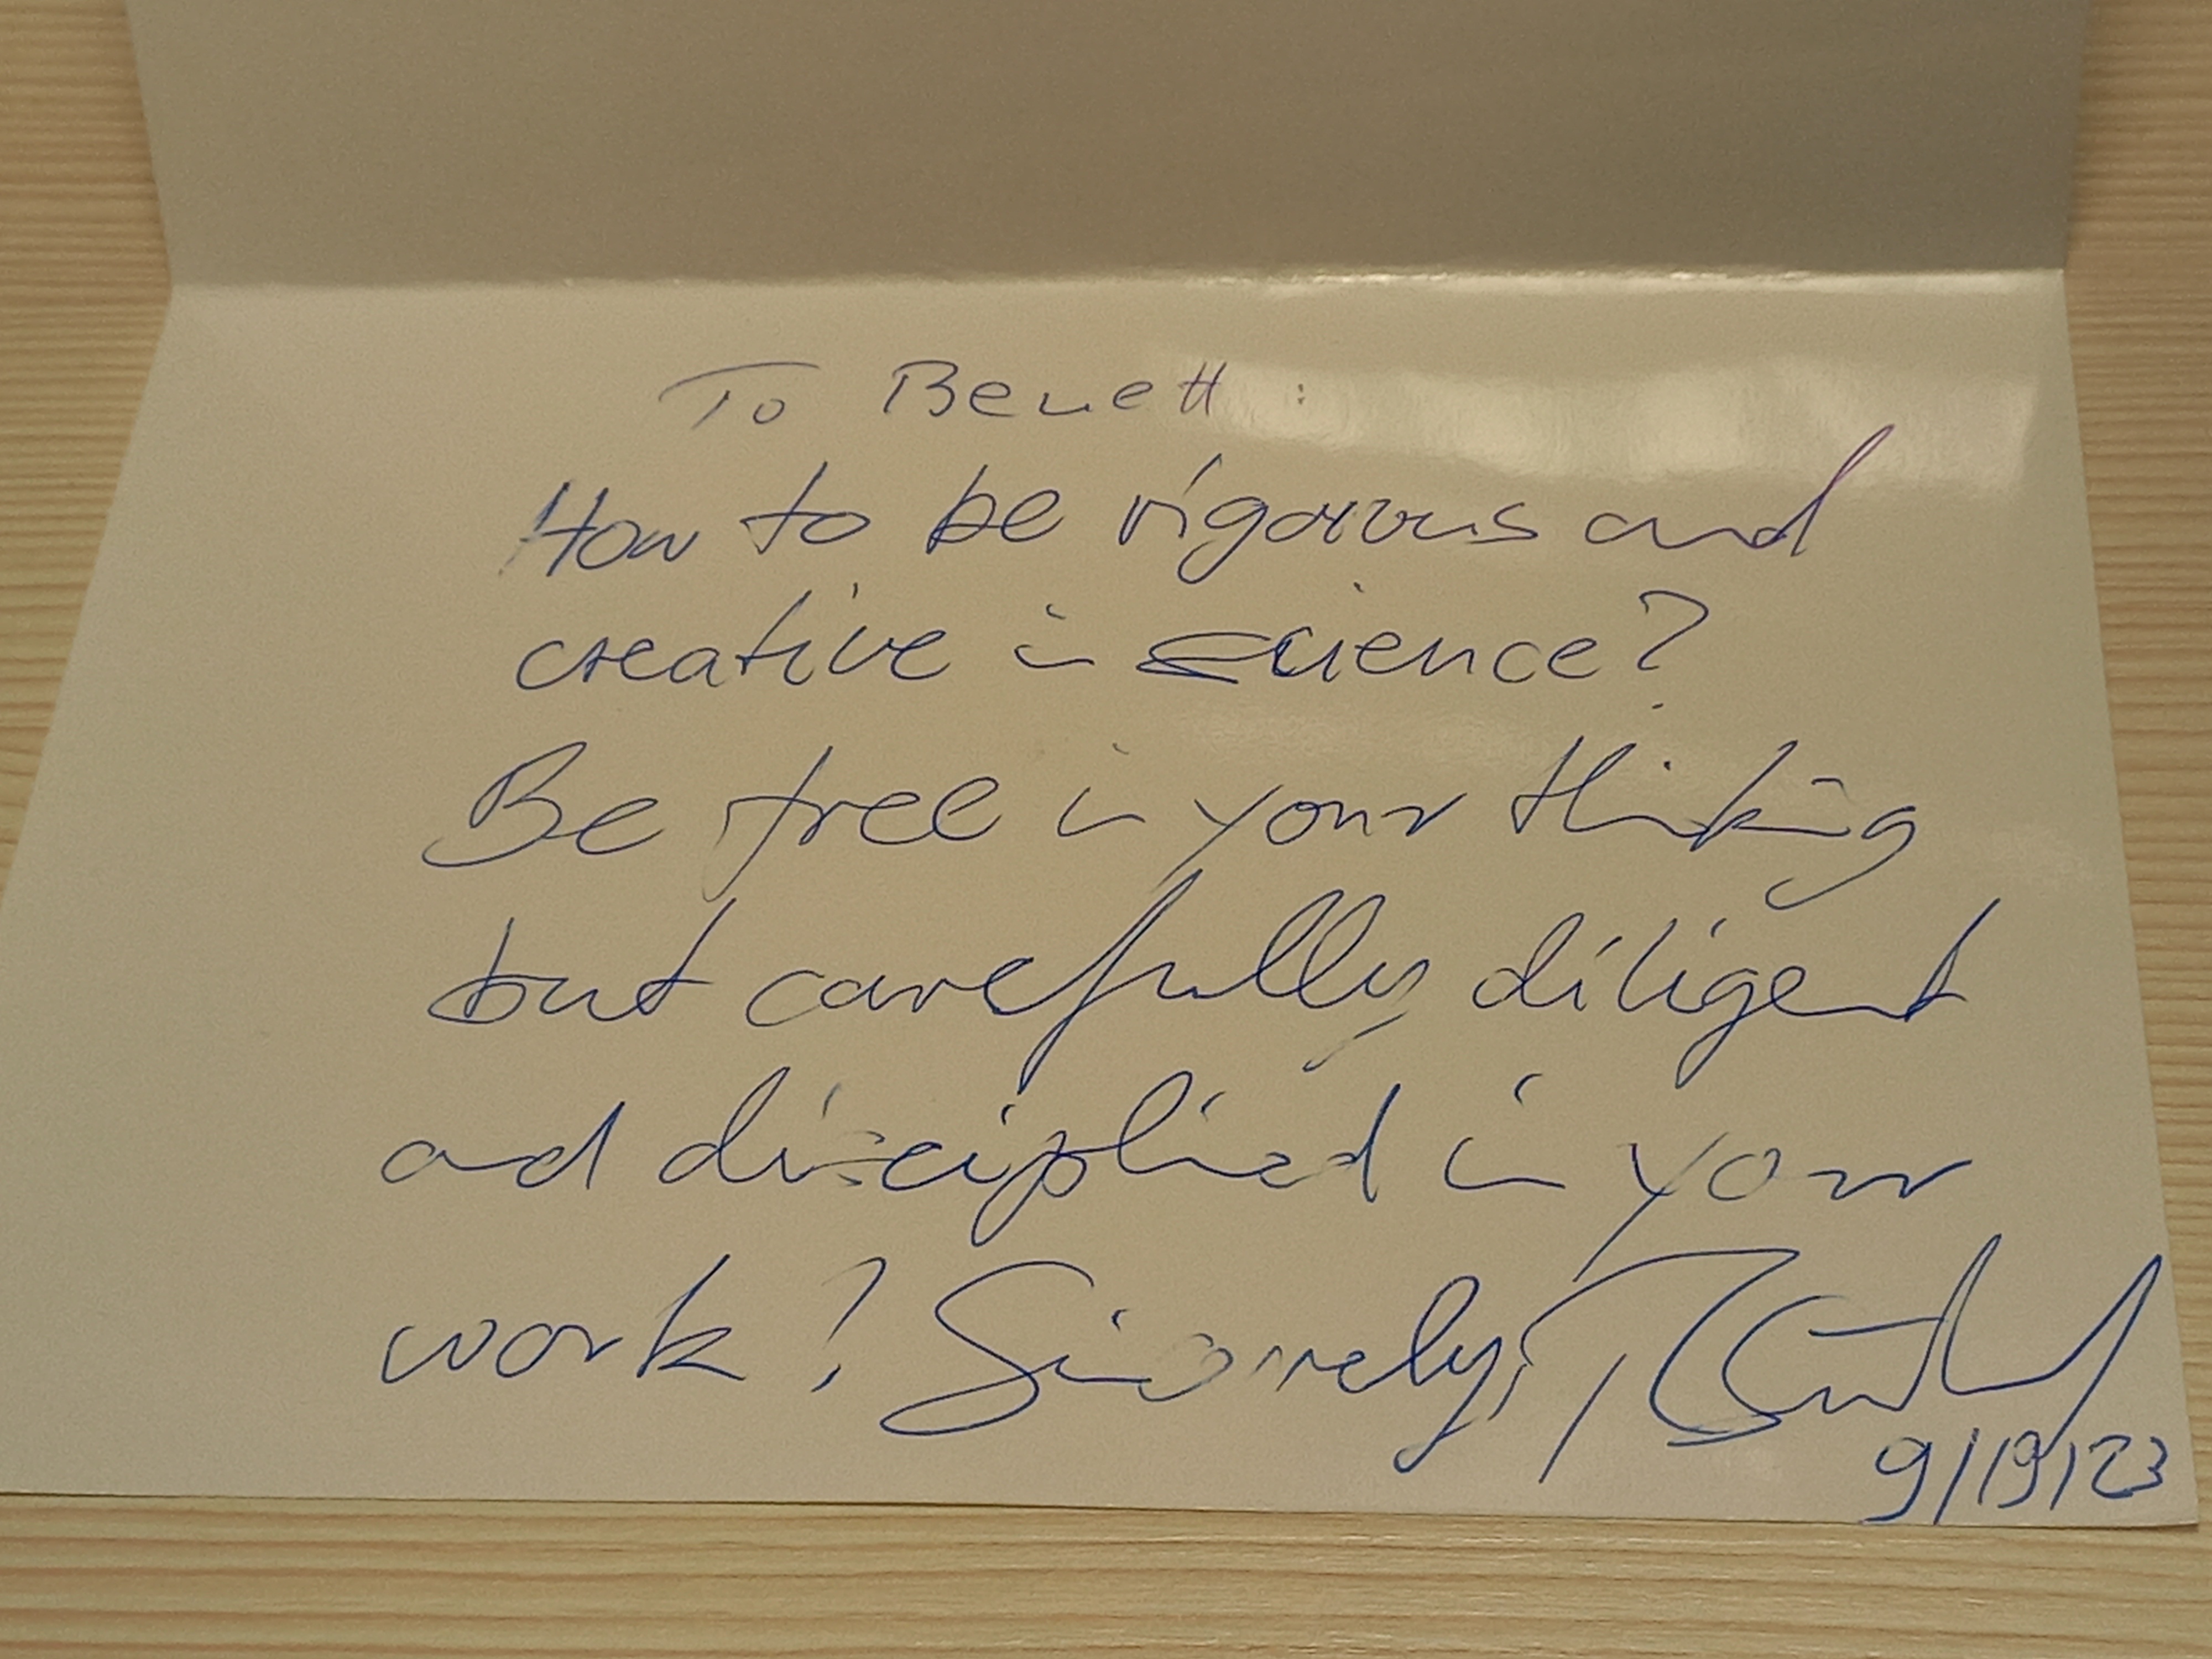 To Benett :
How to be rigorous and
creative in science?
Be free in your thinking
but carefully diligent
and disciplied in your
work! Sincerely,
9/19/23